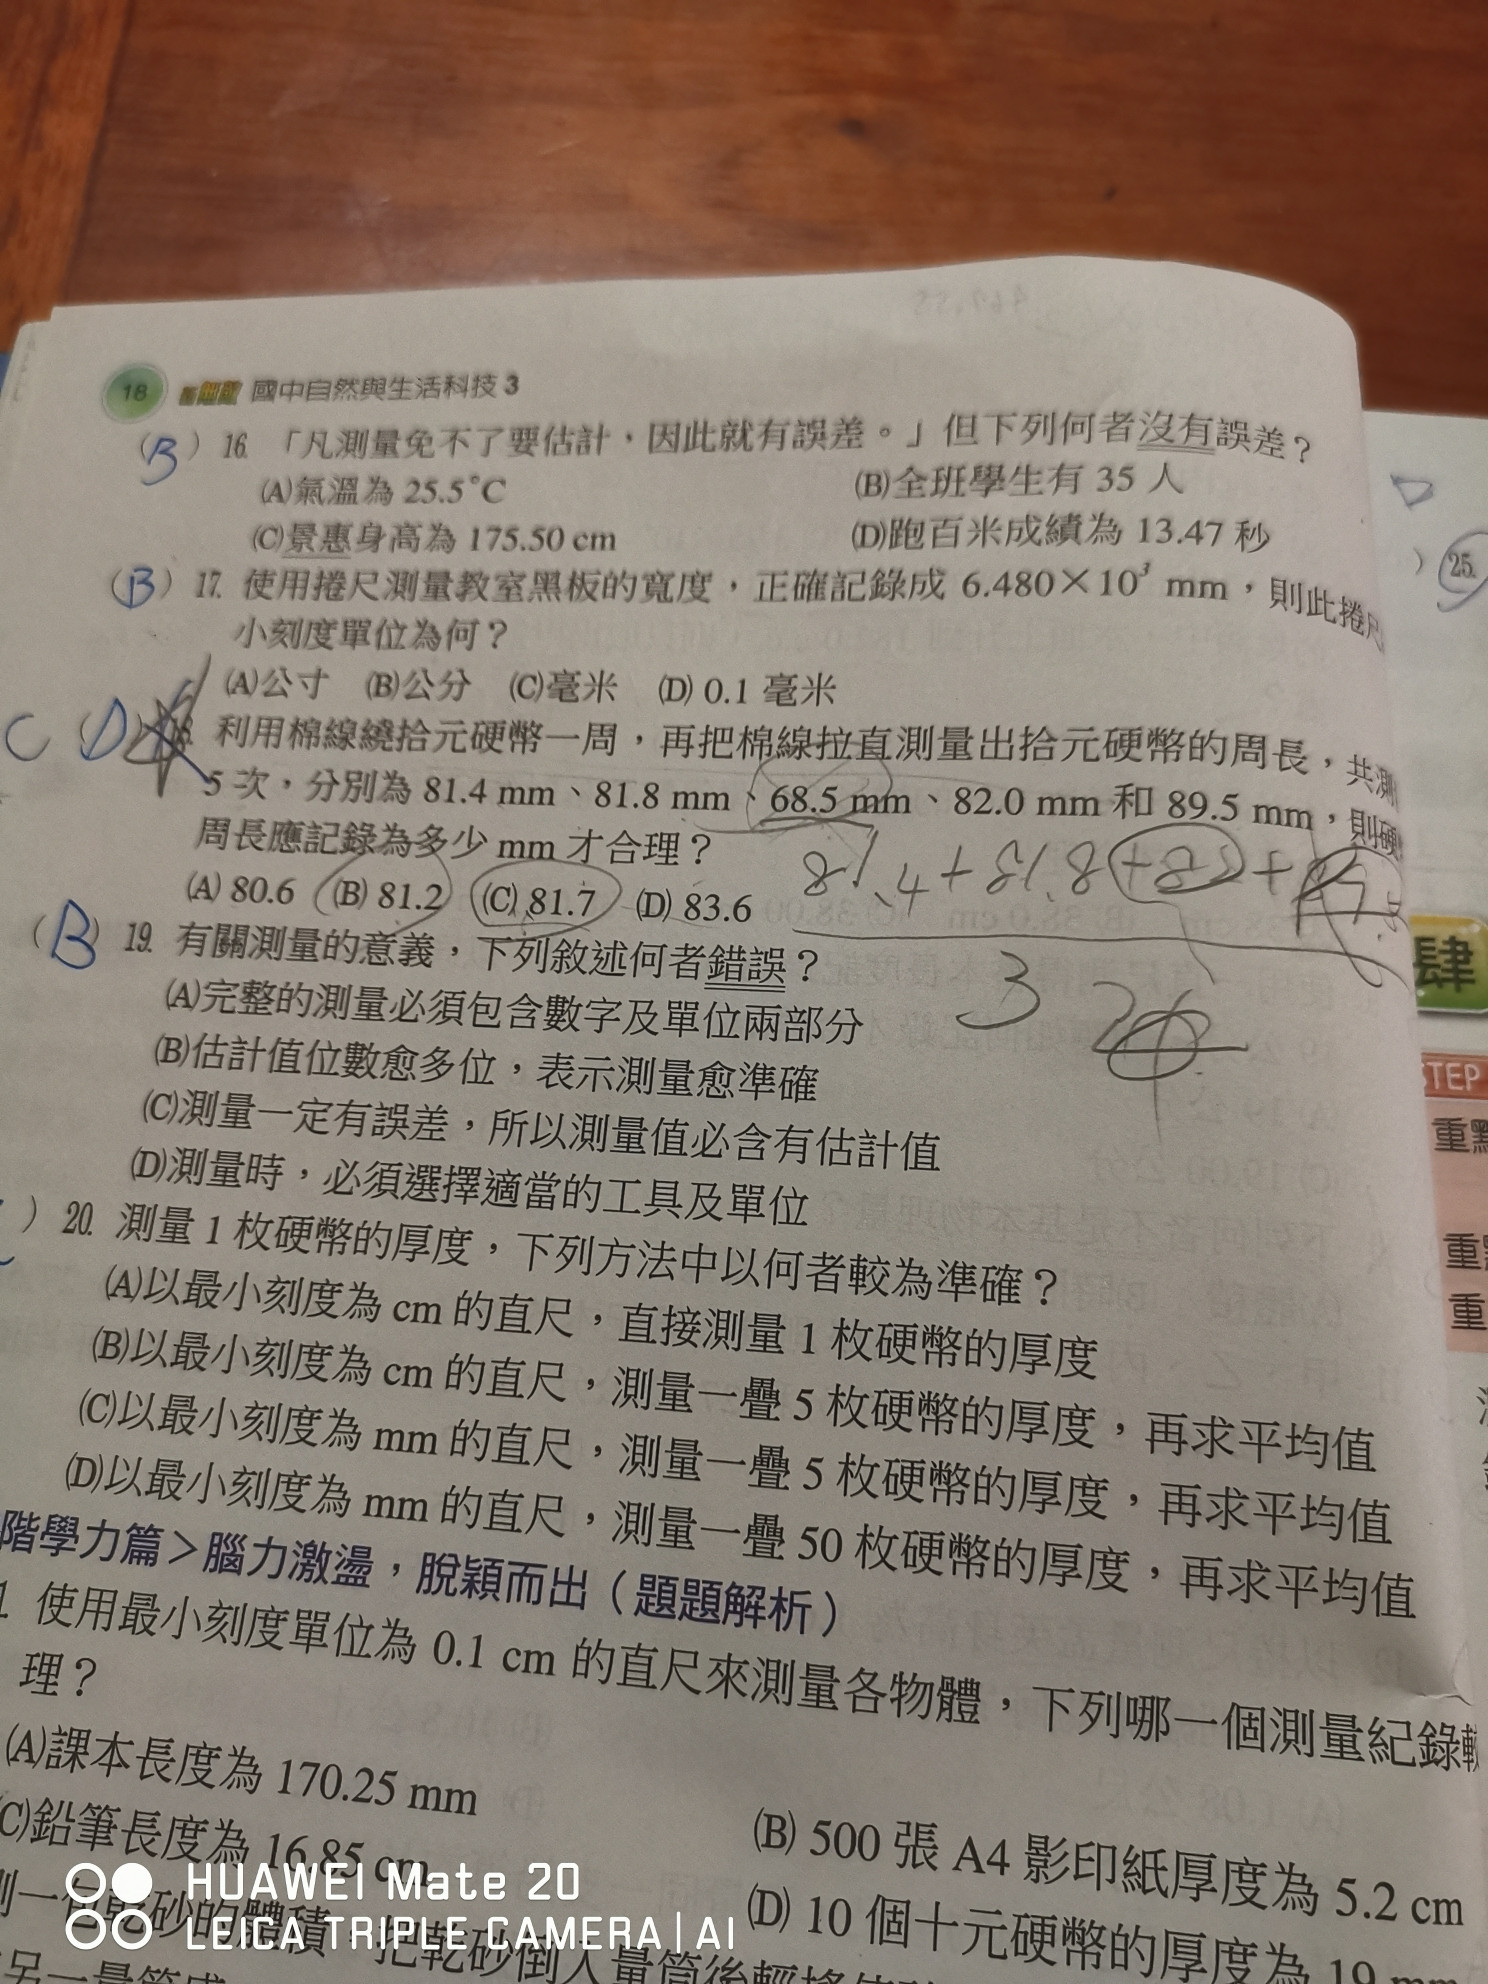 18 國中自然與生活科技 3
(B) 16. 「凡測量免不了要估計，因此就有誤差。」但下列何者沒有誤差？
(A)氣溫為 25.5°C (B)全班學生有 35 人
(C)景惠身高為 175.50 cm (D)跑百米成績為 13.47 秒
(B) 17. 使用捲尺測量教室黑板的寬度，正確記錄成 6.480×10³ mm，則此捲尺
小刻度單位為何？
(A)公寸 (B)公分 (C)毫米 (D) 0.1 毫米
C (D) 18. 利用棉線繞拾元硬幣一周，再把棉線拉直測量出拾元硬幣的周長，共測
5 次，分別為 81.4 mm、81.8 mm、68.5 mm、82.0 mm 和 89.5 mm，則硬
周長應記錄為多少 mm 才合理？
(A) 80.6 (B) 81.2 (C) 81.7 (D) 83.6
(B) 19. 有關測量的意義，下列敘述何者錯誤？
(A)完整的測量必須包含數字及單位兩部分
(B)估計值位數愈多位，表示測量愈準確
(C)測量一定有誤差，所以測量值必含有估計值
(D)測量時，必須選擇適當的工具及單位
) 20. 測量 1 枚硬幣的厚度，下列方法中以何者較為準確？
(A)以最小刻度為 cm 的直尺，直接測量 1 枚硬幣的厚度
(B)以最小刻度為 cm 的直尺，測量一疊 5 枚硬幣的厚度，再求平均值
(C)以最小刻度為 mm 的直尺，測量一疊 5 枚硬幣的厚度，再求平均值
(D)以最小刻度為 mm 的直尺，測量一疊 50 枚硬幣的厚度，再求平均值
階學力篇＞腦力激盪，脫穎而出（題題解析）
1. 使用最小刻度單位為 0.1 cm 的直尺來測量各物體，下列哪一個測量紀錄較
理？
(A)課本長度為 170.25 mm
(B) 500 張 A4 影印紙厚度為 5.2 cm
(C)鉛筆長度為 16.85 cm
(D) 10 個十元硬幣的厚度為 19 mm
乾砂的體積，把乾砂倒入量筒後輕搖
) 25.
肆
STEP
重點
重
重
HUAWEI Mate 20
LEICA TRIPLE CAMERA | AI